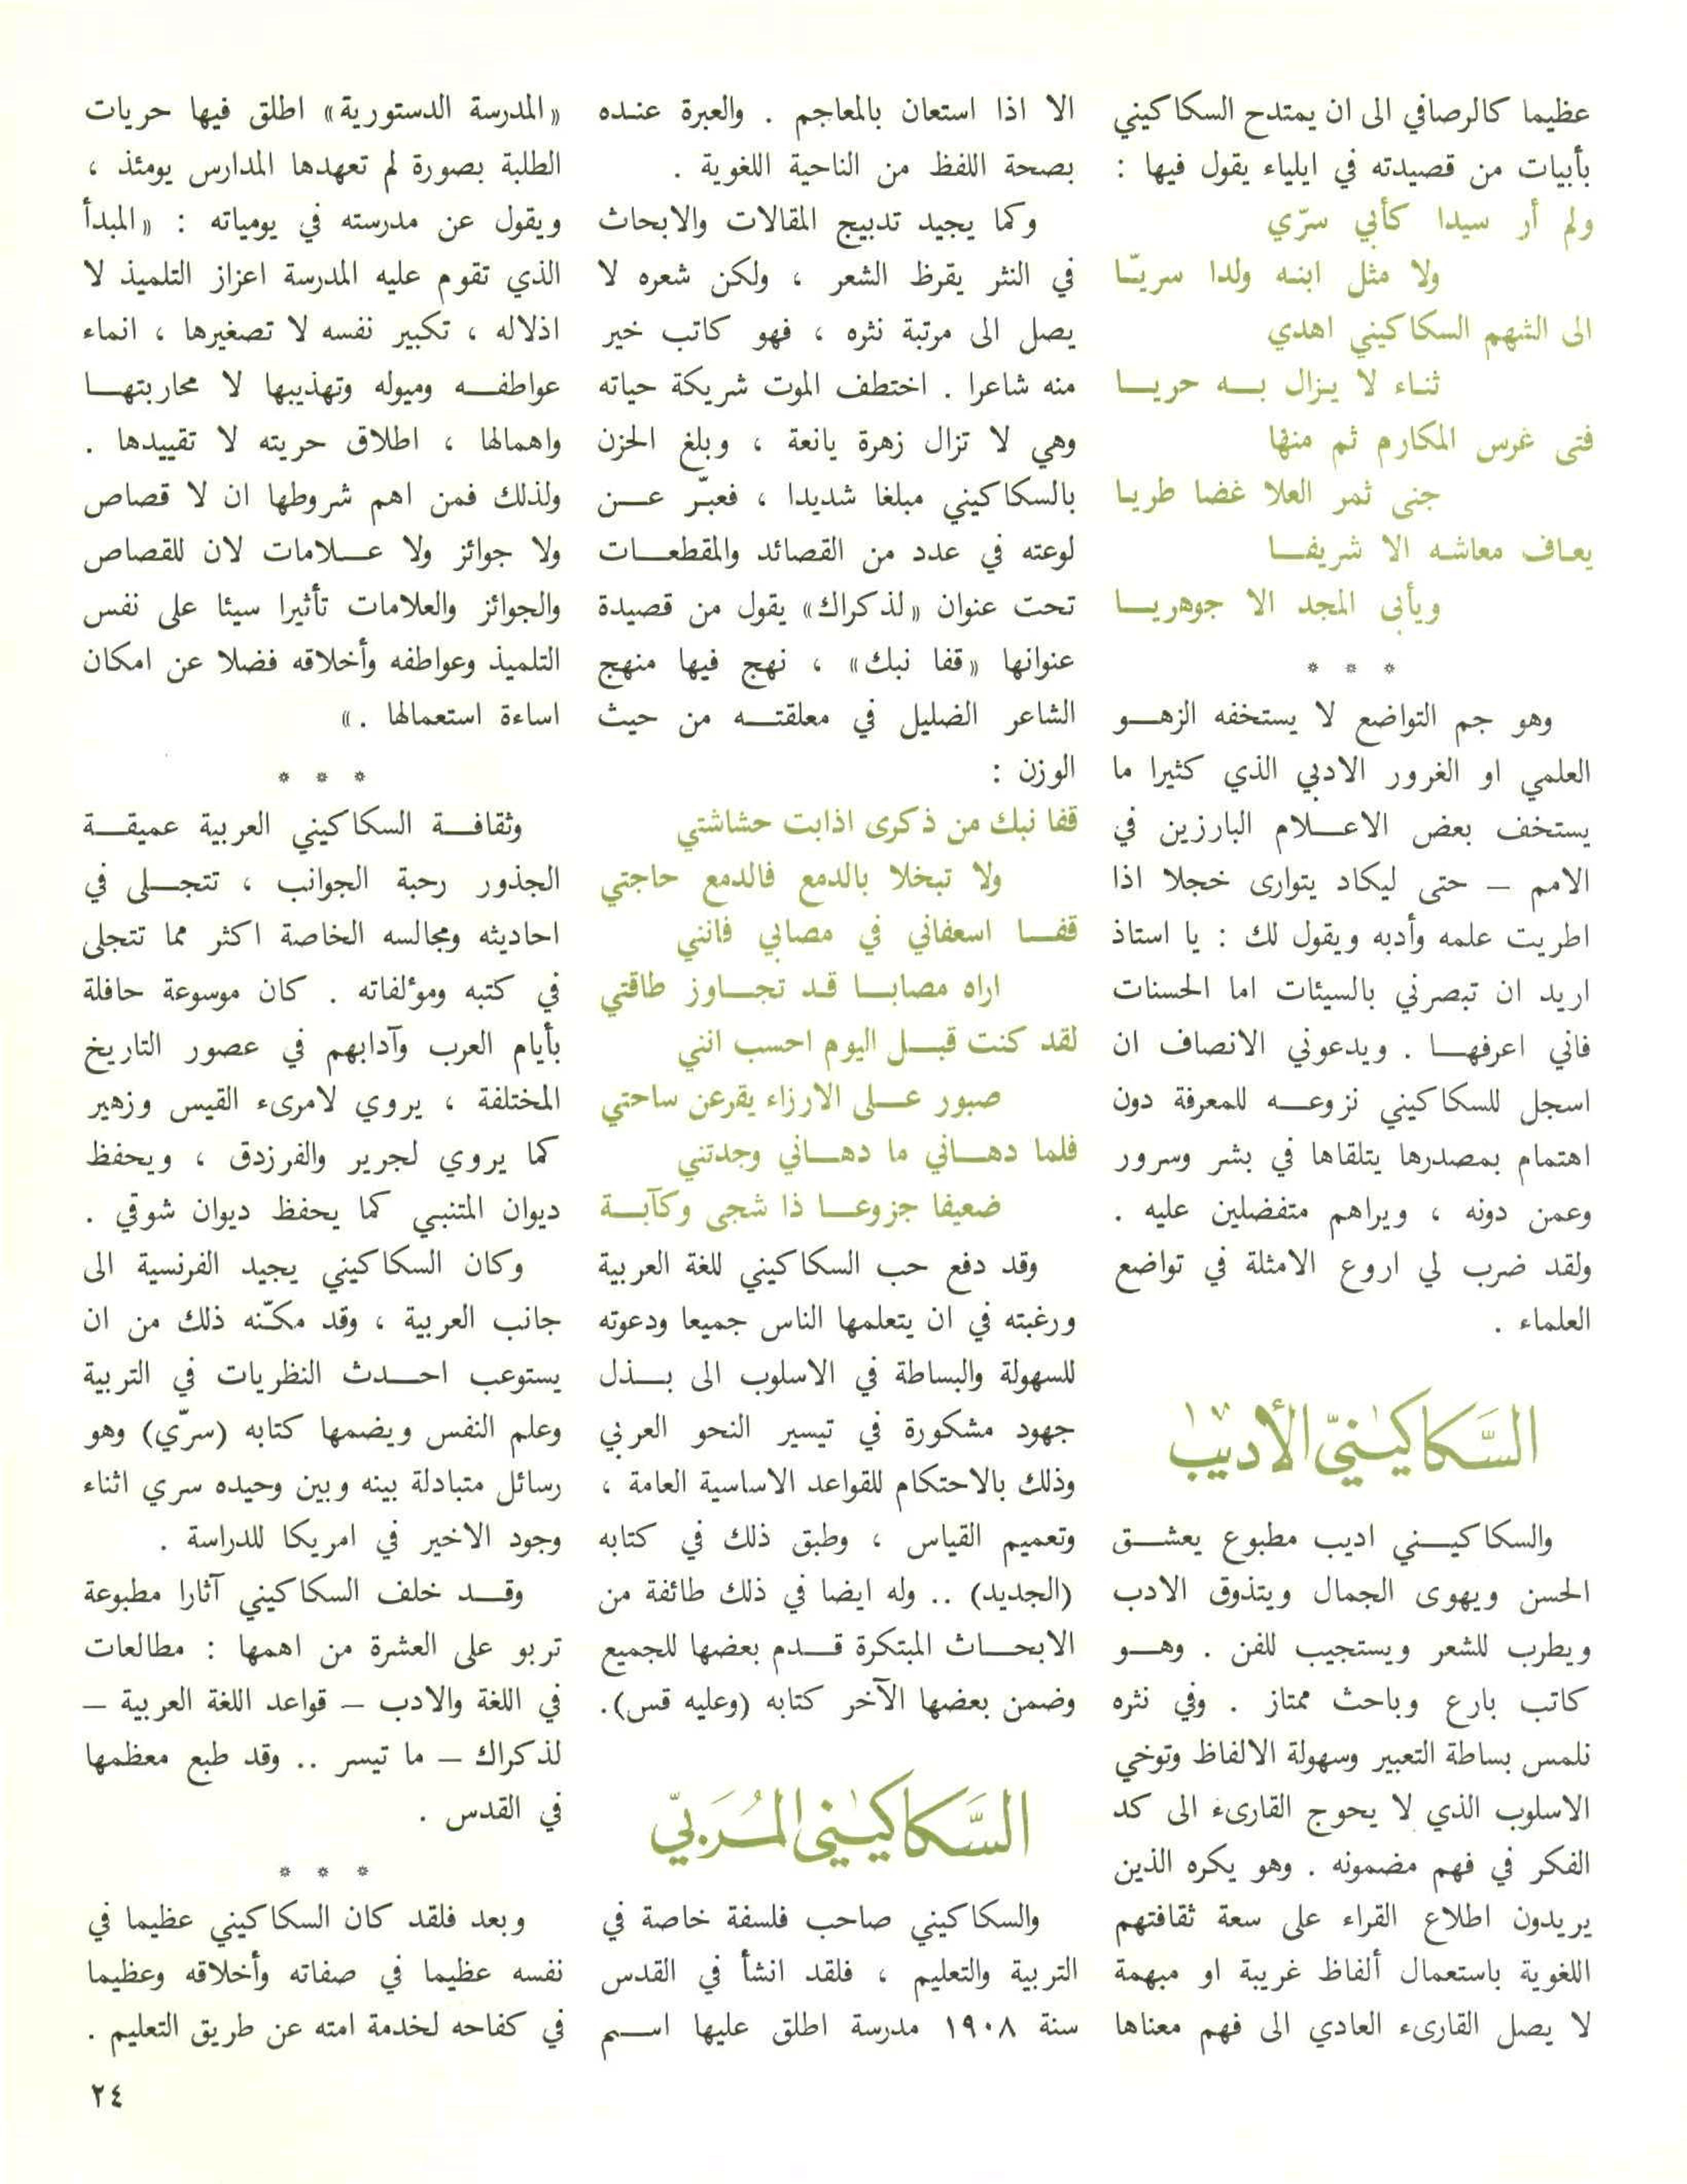 عظيما كالرصافي الى ان يمتدح السكاكيني
بأبيات من قصيدته في ايلياء يقول فيها :
ولم أر سيدا كأبي سرّي
ولا مثل ابنه ولدا سريّا
الى الشهم السكاكيني اهدي
ثناء لا يزال به حريا
فتى غرس المكارم ثم منها
جنى ثمر العلا غضا طريا
يعاف معاشه الا شريفا
ويأبى المجد الا جوهريا
* * *
وهو جم التواضع لا يستخفه الزهو
العلمي او الغرور الادبي الذي كثيرا ما
يستخف بعض الاعلام البارزين في
الامم – حتى ليكاد يتوارى خجلا اذا
اطريت علمه وأدبه ويقول لك : يا استاذ
اريد ان تبصرني بالسيئات اما الحسنات
فاني اعرفها . ويدعوني الانصاف ان
اسجل للسكاكيني نزوعه للمعرفة دون
اهتمام بمصدرها يتلقاها في بشر وسرور
وعمن دونه ، ويراهم متفضلين عليه .
ولقد ضرب لي اروع الامثلة في تواضع
العلماء .
السَّكاكينيّ الأديب
والسكاكيني اديب مطبوع يعشق
الحسن ويهوى الجمال ويتذوق الادب
ويطرب للشعر ويستجيب للفن . وهو
كاتب بارع وباحث ممتاز . وفي نثره
نلمس بساطة التعبير وسهولة الالفاظ وتوخي
الاسلوب الذي لا يحوج القارىء الى كد
الفكر في فهم مضمونه . وهو يكره الذين
يريدون اطلاع القراء على سعة ثقافتهم
اللغوية باستعمال ألفاظ غريبة او مبهمة
لا يصل القارىء العادي الى فهم معناها
الا اذا استعان بالمعاجم . والعبرة عنده
بصحة اللفظ من الناحية اللغوية .
وكما يجيد تدبيج المقالات والابحاث
في النثر يقرظ الشعر ، ولكن شعره لا
يصل الى مرتبة نثره ، فهو كاتب خير
منه شاعرا . اختطف الموت شريكة حياته
وهي لا تزال زهرة يانعة ، وبلغ الحزن
بالسكاكيني مبلغا شديدا ، فعبّر عن
لوعته في عدد من القصائد والمقطعات
تحت عنوان «لذكراك» يقول من قصيدة
عنوانها «قفا نبك» ، نهج فيها منهج
الشاعر الضليل في معلقته من حيث
الوزن :
قفا نبك من ذكرى اذابت حشاشتي
ولا تبخلا بالدمع فالدمع حاجتي
قفا اسعفاني في مصابي فانني
اراه مصابا قد تجاوز طاقتي
لقد كنت قبل اليوم احسب انني
صبور على الارزاء يقرعن ساحتي
فلما دهاني ما دهاني وجدتني
ضعيفا جزوعا ذا شجى وكآبة
وقد دفع حب السكاكيني للغة العربية
ورغبته في ان يتعلمها الناس جميعا ودعوته
للسهولة والبساطة في الاسلوب الى بذل
جهود مشكورة في تيسير النحو العربي
وذلك بالاحتكام للقواعد الاساسية العامة ،
وتعميم القياس ، وطبق ذلك في كتابه
(الجديد) .. وله ايضا في ذلك طائفة من
الابحاث المبتكرة قدم بعضها للجميع
وضمن بعضها الآخر كتابه (وعليه قس).
السَّكاكيني المُرَبّي
والسكاكيني صاحب فلسفة خاصة في
التربية والتعليم ، فلقد انشأ في القدس
سنة ١٩٠٨ مدرسة اطلق عليها اسم
«المدرسة الدستورية» اطلق فيها حريات
الطلبة بصورة لم تعهدها المدارس يومئذ ،
ويقول عن مدرسته في يومياته : «المبدأ
الذي تقوم عليه المدرسة اعزاز التلميذ لا
اذلاله ، تكبير نفسه لا تصغيرها ، انماء
عواطفه وميوله وتهذيبها لا محاربتها
واهمالها ، اطلاق حريته لا تقييدها .
ولذلك فمن اهم شروطها ان لا قصاص
ولا جوائز ولا علامات لان للقصاص
والجوائز والعلامات تأثيرا سيئا على نفس
التلميذ وعواطفه وأخلاقه فضلا عن امكان
اساءة استعمالها .»
* * *
وثقافة السكاكيني العربية عميقة
الجذور رحبة الجوانب ، تتجلى في
احاديثه ومجالسه الخاصة اكثر مما تتجلى
في كتبه ومؤلفاته . كان موسوعة حافلة
بأيام العرب وآدابهم في عصور التاريخ
المختلفة ، يروي لامرىء القيس وزهير
كما يروي لجرير والفرزدق ، ويحفظ
ديوان المتنبي كما يحفظ ديوان شوقي .
وكان السكاكيني يجيد الفرنسية الى
جانب العربية ، وقد مكّنه ذلك من ان
يستوعب احدث النظريات في التربية
وعلم النفس ويضمها كتابه (سرّي) وهو
رسائل متبادلة بينه وبين وحيده سري اثناء
وجود الاخير في امريكا للدراسة .
وقد خلف السكاكيني آثارا مطبوعة
تربو على العشرة من اهمها : مطالعات
في اللغة والادب – قواعد اللغة العربية –
لذكراك – ما تيسر .. وقد طبع معظمها
في القدس .
* * *
وبعد فلقد كان السكاكيني عظيما في
نفسه عظيما في صفاته وأخلاقه وعظيما
في كفاحه لخدمة امته عن طريق التعليم .
٢٤